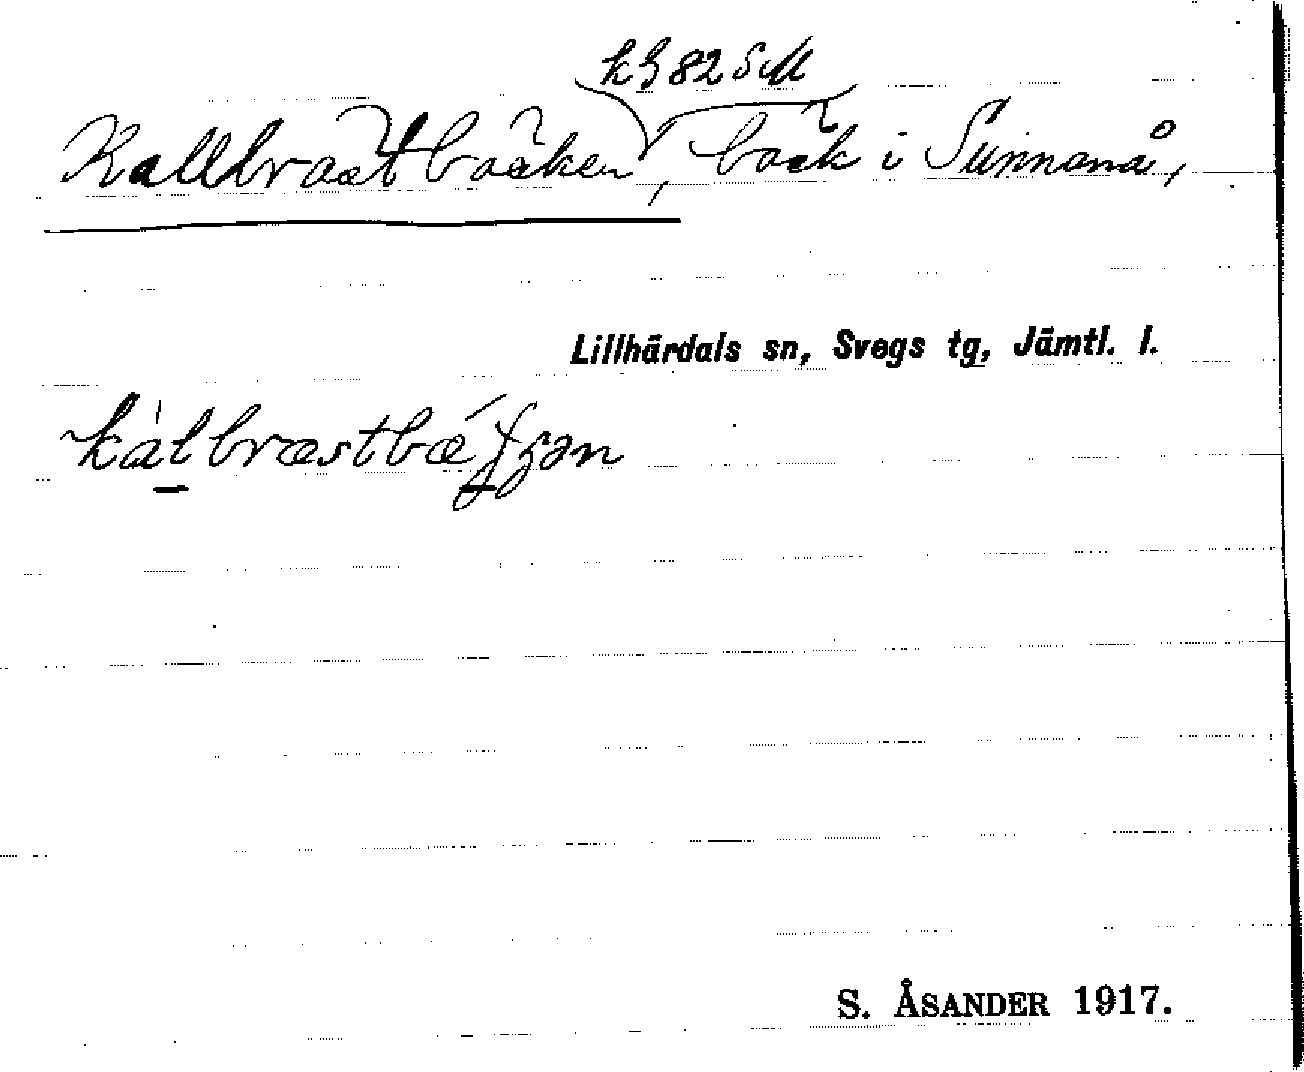 k 3 82 SM
Kallbrästbäcken, bäck i Sunnanå,
Lillhärdals sn, Svegs tg, Jämtl. l.
S. ÅSANDER 1917.